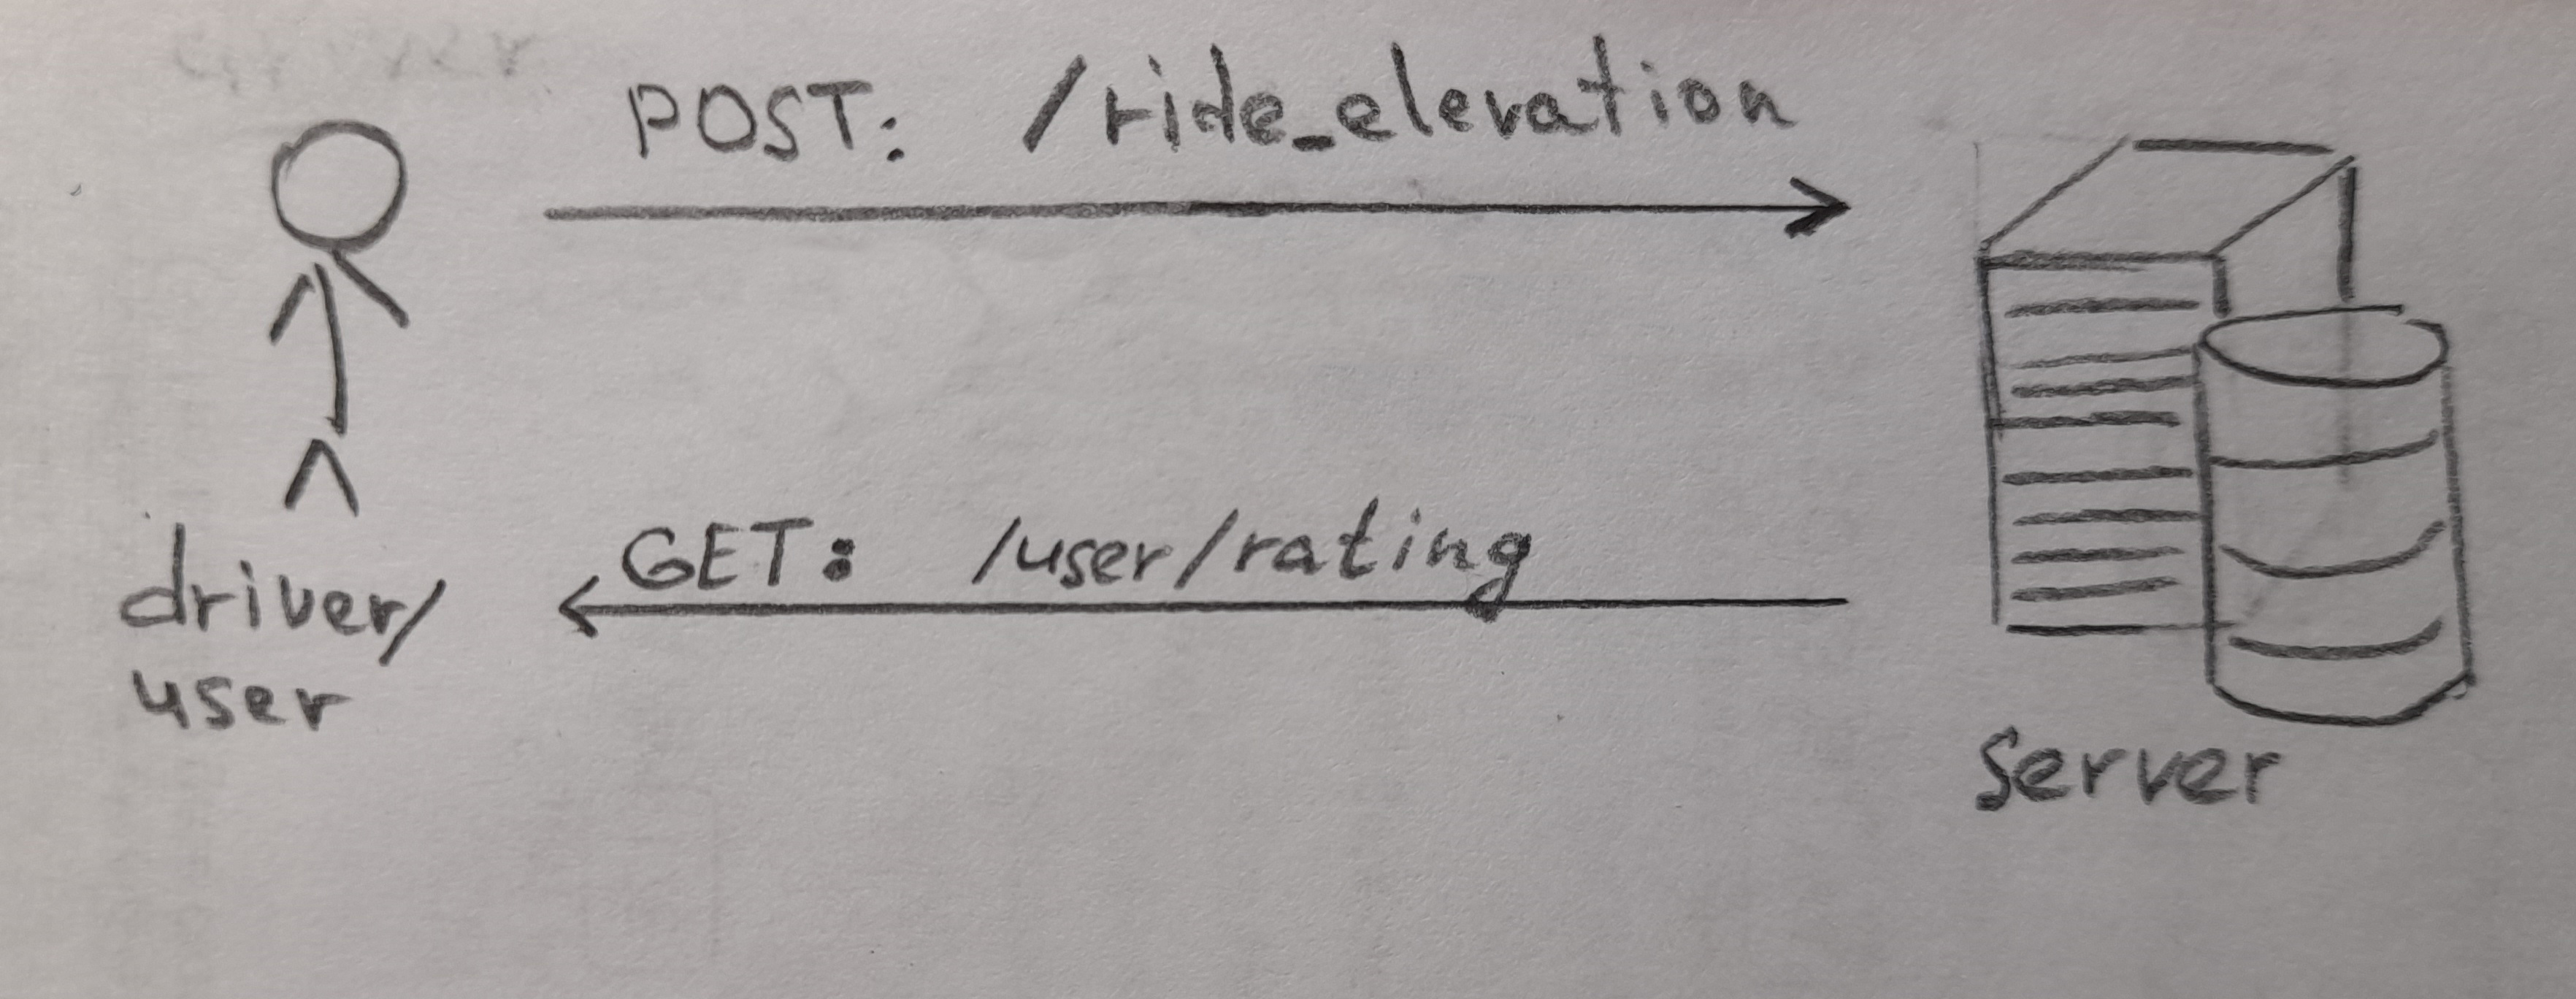 POST: /ride_elevation
GET: /user/rating
driver/
user
Server